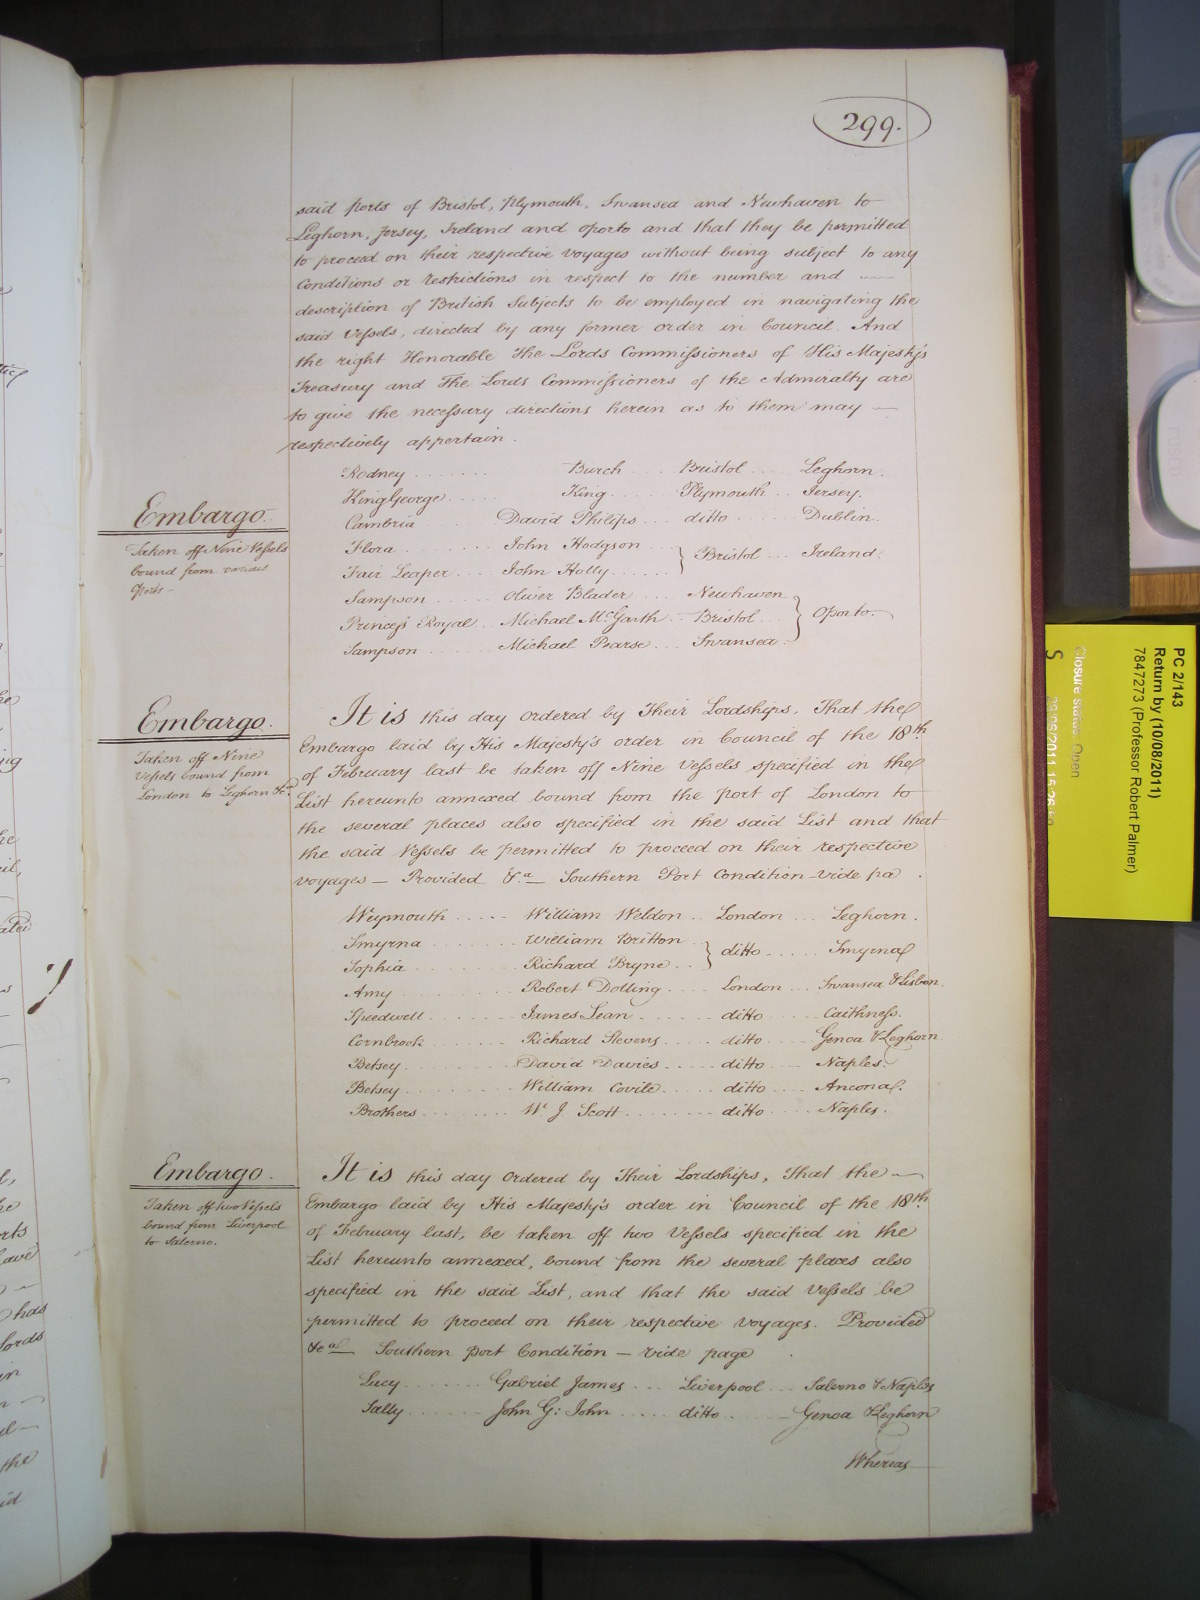 299.
said ports of Bristol, Plymouth, Swansea and Newhaven to
Leghorn, Jersey, Ireland and Oporto and that they be permitted
to proceed on their respective voyages without being subject to any
Conditions or restrictions in respect to the number and —
description of British Subjects to be employed in navigating the
said Vessels, directed by any former order in Council. And
the right Honorable The Lords Commissioners of His Majesty's
Treasury and The Lords Commissioners of the Admiralty are
to give the necessary directions herein as to them may —
respectively appertain.
Embargo.
Taken off Nine Vessels
bound from various
Ports —
Rodney ........ Burch .... Bristol .... Leghorn.
King George ..... King ..... Plymouth ... Jersey.
Cambria ...... David Philips ... ditto ..... Dublin.
Flora ........ John Hodgson ... } Bristol ... Ireland.
Fair Leaper .... John Holly ...... }
Sampson ...... Oliver Blader ... Newhaven }
Princess Royal .. Michael McGarth .. Bristol .. } Oporto.
Sampson ...... Michael Pearse ... Swansea .. }
Embargo.
Taken off Nine
Vessels bound from
London to Leghorn &ca.
It is this day ordered by Their Lordships, That the
Embargo laid by His Majesty's order in Council of the 18th
of February last be taken off Nine Vessels specified in the
List hereunto annexed bound from the port of London to
the several places also specified in the said List and that
the said Vessels be permitted to proceed on their respective
voyages — Provided &ca — Southern Port Condition – vide pa .
Weymouth ..... William Weldon .. London ... Leghorn.
Smyrna ....... William Britton .. } ditto ..... Smyrna
Sophia ........ Richard Bryne .. }
Amy ........ Robert Dolling .... London ... Swansea & Lisbon.
Speedwell ....... James Lean ....... ditto ..... Caithness.
Cornbrook ....... Richard Stevens .... ditto .... Genoa & Leghorn.
Betsey ........ David Davies ..... ditto .... Naples.
Betsey ........ William Covite ..... ditto .... Ancona.
Brothers ........ Wm J Scott ........ ditto .... Naples.
Embargo.
Taken off two Vessels
bound from Liverpool
to Salerno.
It is this day ordered by Their Lordships, That the —
Embargo laid by His Majesty's order in Council of the 18th
of February last, be taken off two Vessels specified in the
List hereunto annexed, bound from the several places also
specified in the said List, and that the said Vessels be
permitted to proceed on their respective voyages. Provided
&ca — Southern Port Condition — vide page .
Lucy ....... Gabriel James ... Liverpool ... Salerno & Naples
Sally ....... John G: John ..... ditto ..... Genoa & Leghorn
Whereas
PC 2/143
Return by (10/08/2011)
7847273 (Professor Robert Palmer)
Closure status: Open
S